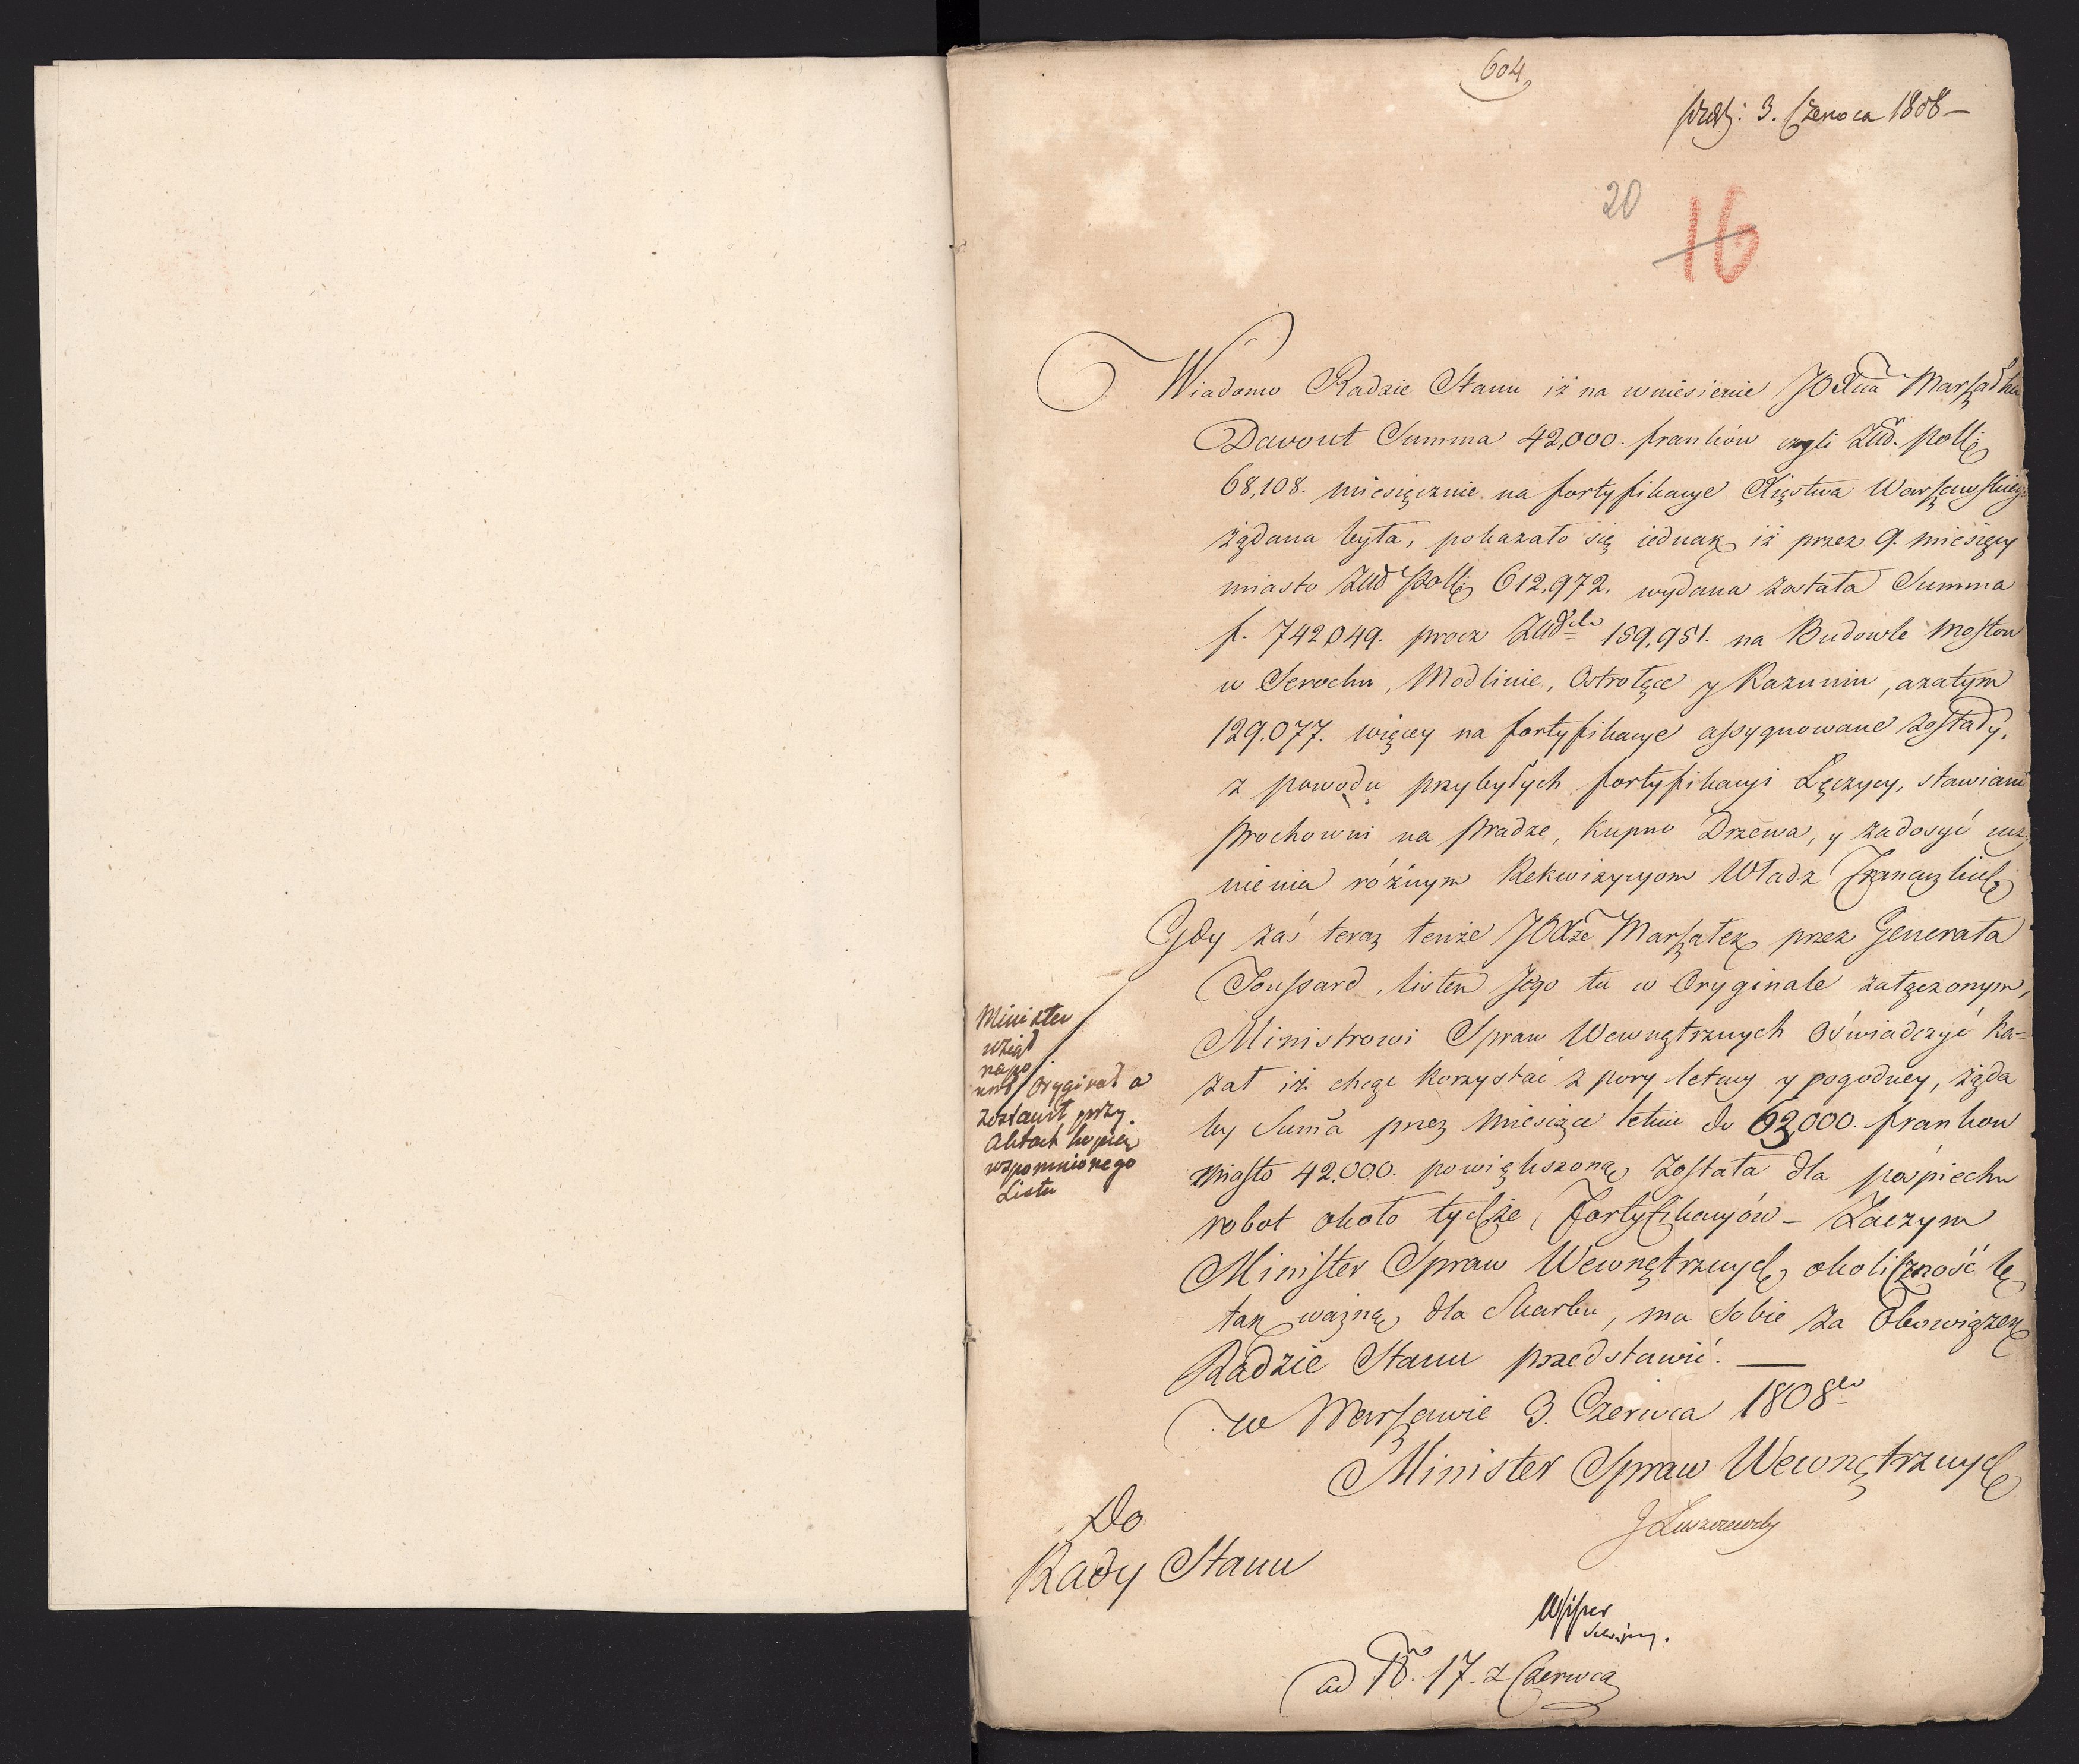 604
prdst: 3. Czerwca 1808 –
20
16
Wiadomo Radzie Stanu iż na wniesienie JOXcia Marszałka
Davout Summa 42,000. franków czyli Złłd. polł
68,108. miesięcznie na fortyfikacye Xięstwa Warszawskieg
żądana była, pokazało się iednak iż przez 9. miesięcy
miasto Złłd Polł 612.972. wydana została Summa
f. 742,049. procz 159.951. na Budowle Mostow
w Serocku, Modlinie, Ostrołęce y Kazuniu, azatym
129.077. więcey na fortyfikacye assygnowane zostały,
z powodu przybyłych fortyfikacyi Łęczycy, stawiani
Prochowni na Pradze, Kupno Drzewa, y zadosyć ucz
nienia różnym Rekwizycyom Władz Francuzkich
Gdy zaś teraz tenże JOXże Marszałek przez Generała
Toussard, listem Jego tu w Oryginale załączonym,
Ministrowi Spraw Wewnętrznych Oświadczyć ka-
zał iż chcąc korzystać z pory letniey y pogodney, żąda
by Summa przez Miesiące letnie do 62,000. frankow
Miasto 42,000. powiększoną została dla pośpiechu
robot około tychże Fortyfikacyów – Zaczym
Minister Spraw Wewnętrznych okoliczność tę
tak ważną dla Skarbu, ma sobie za Obowiązek
Radzie Stanu przedstawić. —
w Warszawie 3. Czerwca 1808
Minister Spraw Wewnętrznych
J Łuszczewski
Minister
wziął
napo
wrót Oryginał a
zostawił przy
Aktach kopią
wspomnionego
Listu
Do
Rady Stanu
ad N. 17. z Czerwca